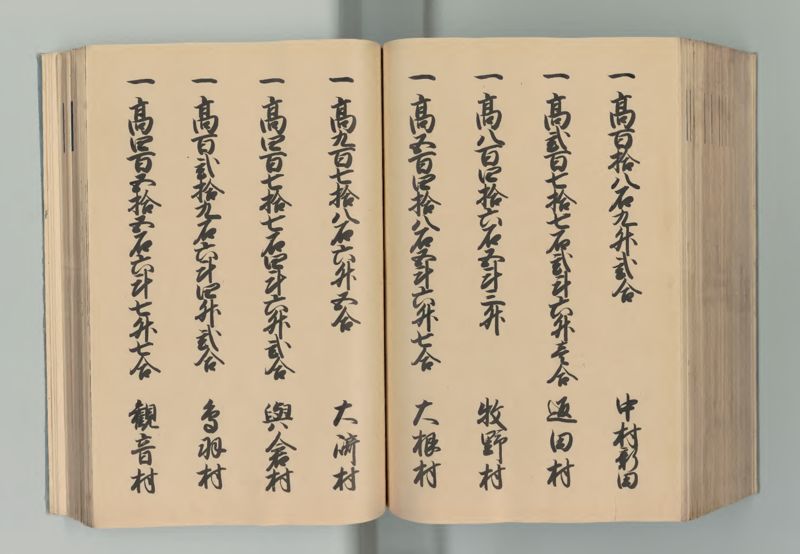 一 高百拾八石九升弐合 中村新田
一 高弐百七拾七石弐斗六升壱合 返田村
一 高八百四拾六石五斗三升 牧野村
一 高五百四拾八石五斗六升七合 大根村
一 高九百七拾八石六升五合 大崎村
一 高四百七拾七石四斗六升弐合 與倉村
一 高百弐拾九石六斗四升弐合 鳥羽村
一 高四百五拾五石六斗七升七合 観音村